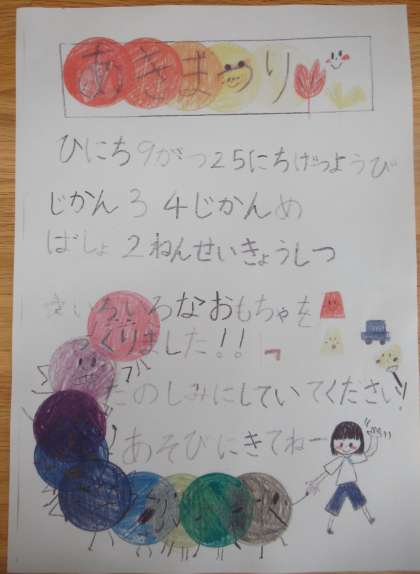 あきまつり
ひにち9がつ25にちげつようび
じかん3 4じかんめ
ばしょ2ねんせいきょうしつ
いろいろなおもちゃを
つくりました!!
たのしみにしていてください!
あそびにきてねー